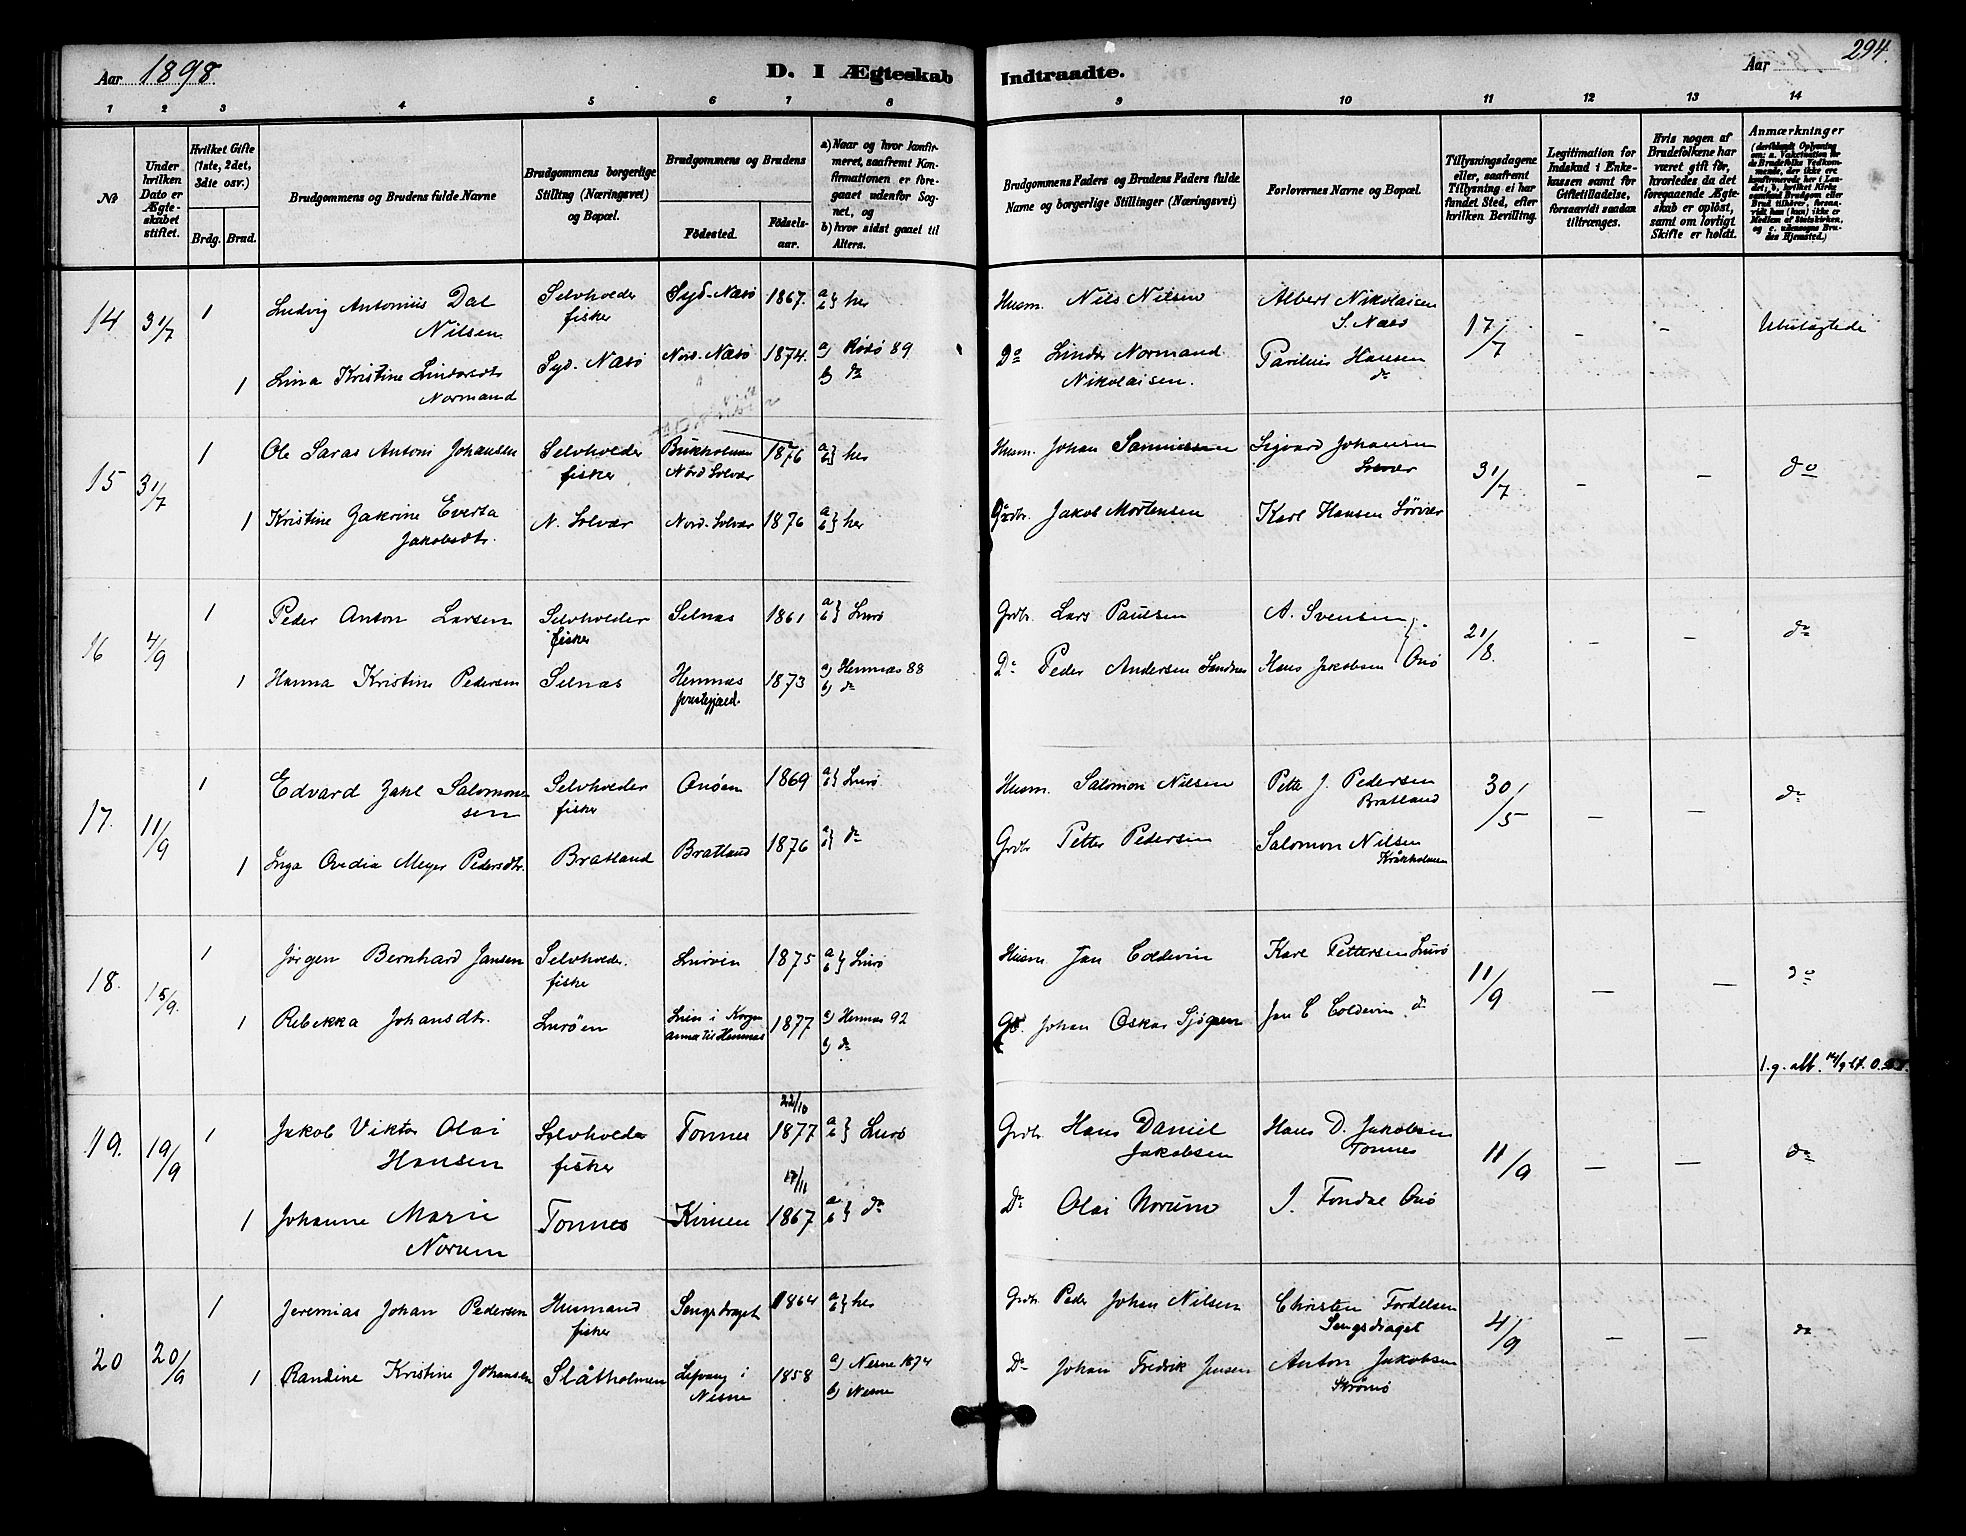 Aar 1898. D. I Ægteskab Indtraadte. Aar 294.
1 2 3 4 5 6 7 8 9 10 11 12 13 14
No
Under hvilken Dato er Ægteskabet stiftet.
Hvilket Gifte (1ste, 2det, 3die osv.)
Brdg. Brud.
Brudgommens og Brudens fulde Navne
Brudgommens borgerlige Stilling (Næringsvei) og Bopæl.
Brudgommens og Brudens
Födested. Födselsaar.
a) Naar og hvor konfirmeret, saafremt Konfirmationen er foregaaet udenfor Sognet, og
b) hvor sidst gaaet til Alters.
Brudgommens Faders og Brudens Faders fulde Navne og borgerlige Stillinger (Næringsvei)
Forlovernes Navne og Bopæl.
Tillysningsdagene eller, saafremt Tillysning ei har fundet Sted, efter hvilken Bevilling.
Legitimation for Indskud i Enkekassen samt for Giftetilladelse, forsaavidt saadan tiltrænges.
Hvis nogen af Brudefolkene har været gift för, hvorledes da det foregaaende Ægteskab er oplöst, samt om lovligt Skifte er holdt.
Anmærkninger
14 31/7 1 Ludvig Antonius Dal Nilsen Selvhveder fisker Syd-Næsö 1867. a b } her Husm. Nils Nilsen Albert Nikolaisen S. Næsö 17/7 - - Ubeslægtede
1 Lina Kristine Normand Syd. Næsö Nord. Næsö 1874. a) Rösö 89 b) do Do Normand Nikolaisen. Hansen do
15 31/7 1 Ole Saras Antoni Johansen Selvhveder fisker Nord Solvær 1876 a b } her Husm. Johan Sigvard Johansen Solvær 31/7 - - do
1 Kristine Jakrine Everta Jakobsdtr. N. Solvær Nord. Solvær 1876 a b } her Grdbr. Jakob Mortensen Karl Hansen Sörvær
16 4/9 1 Peder Anton Larsen Selvhveder fisker Selnæs 1861 a b } Lurö Grdbr. Lars Paulsen A. Svensen 21/8. - - do
1 Hanna Kristine Pedersen Selnæs Hemnæs præstegjæld. 1873 a) Hemnæs 88 b) do Do Peder Andersen Sandnes Hans Jakobsen Onö
17. 11/9 1 Edvard Zahl Salomonsen Selvhveder fisker Onöen 1869 a b } Lurö Husm. Salomon Nilsen Petter J. Pedersen Bratland 30/5 - - do
1 Inga Ovedia Meyer Pedersdtr. Bratland Bratland 1876 do Grdbr Petter Pedersen Salomon Nilsen Kråkholmen
18. 15/9. 1 Jörgen Bernhard Jansen Selvhveder. fisker Luröen 1875 a b } Lurö Husm Jan Coldevin Karl Pettersen Lurö 11/9 - - do
1 Rebekka Johansdtr. Luröen i Korgen annex til Hemnæs 1877 a) Hemnæs 92 b) do Johan Oskar Sjögren Jan C Coldevin do
19. 19/9 1 Jakob Viktor Olai Hansen Selvhveder fisker Tonnes 22/10 1877 a b } Lurö Grdbr Hans Daniel Jakobsen Hans D. Jakobsen Tonnes 11/9 - - do
1 Johanne Marie Norum Tonnes Kvinen 17/11 1867 a b } do Do Olai Norum J. Fondal Onö
20 20/9 1 Jeremias Johan Pedersen Husmand fisker Sengsdraget 1864 a b } her Grdbr Peder Johan Nilsen Christen Fordelsen Sengsdraget 4/9 - - do
1 Randine Kristine Johansen Slåtholmen i Nesne 1858 a) Nesne 1874 b) Nesne Do Johan Fredrik Jensen Anton Jakobsen